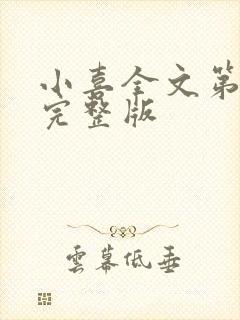 小喜全文第
完整版
雲幕低垂